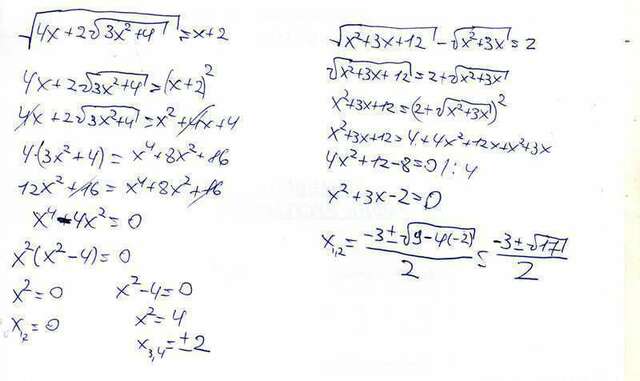 √(4x+2√(3x²+4)) = x+2
4x+2√(3x²+4) = (x+2)²
4x+2√(3x²+4) = x²+4x+4
4(3x²+4) = x⁴+8x²+16
12x²+16 = x⁴+8x²+16
x⁴-4x² = 0
x²(x²-4) = 0
x² = 0 x²-4 = 0
x₁,₂ = 0 x² = 4
x₃,₄ = ±2
√(x²+3x+12) - √(x²+3x) = 2
√(x²+3x+12) = 2+√(x²+3x)
x²+3x+12 = (2+√(x²+3x))²
x²+3x+12 = 4+4x²+12x+x²+3x
4x²+12-8 = 0 /: 4
x²+3x-2 = 0
x₁,₂ = (-3±√(9-4(-2)))/2 = (-3±√17)/2